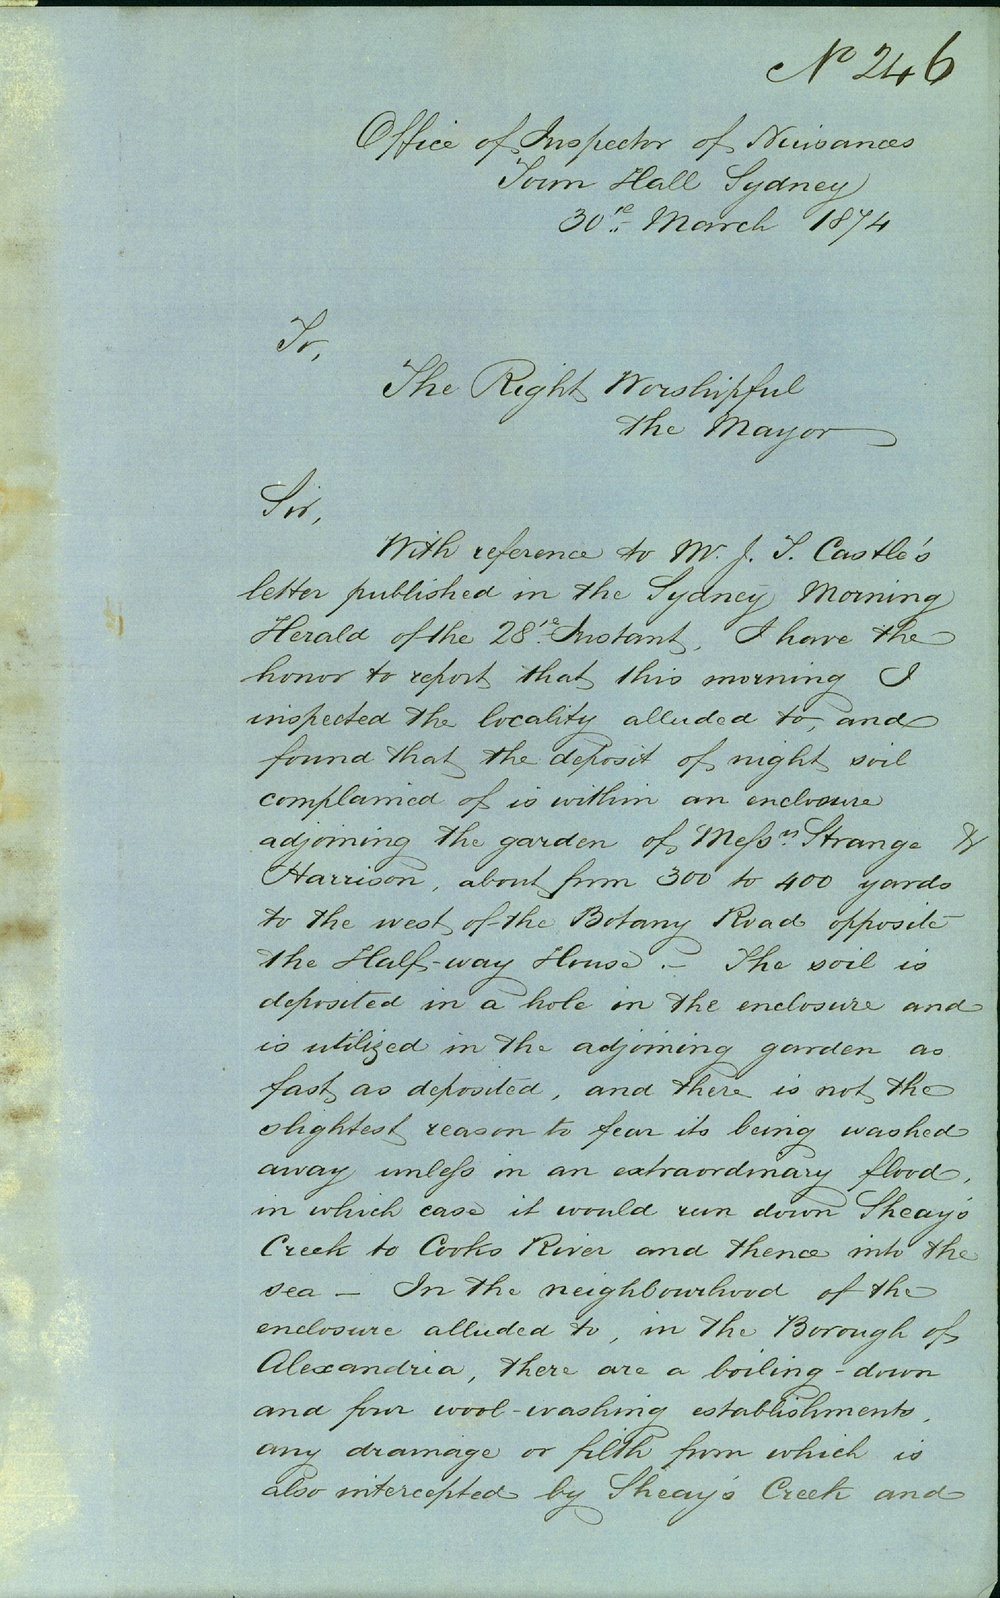 No 246
Office of Inspector of Nuisances
Town Hall Sydney
30th March 1874
To,
The Right Worshipful
the Mayor
Sir,
With reference to Mr. J. T. Castle's
letter published in the Sydney Morning
Herald of the 28th Instant, I have the
honor to report that this morning I
inspected the locality alluded to, and
found that the deposit of night soil
complained of is within an enclosure
adjoining the garden of Messrs Strange &
Harrison, about from 300 to 400 yards
to the west of the Botany Road opposite
the Half-way House. – The soil is
deposited in a hole in the enclosure and
is utilized in the adjoining garden as
fast as deposited, and there is not the
slightest reason to fear its being washed
away unless in an extraordinary flood,
in which case it would run down Sheay's
Creek to Cooks River and thence into the
sea – In the neighbourhood of the
enclosure alluded to, in the Borough of
Alexandria, there are a boiling-down
and four wool-washing establishments,
any drainage or filth from which is
also intercepted by Sheay's Creek and